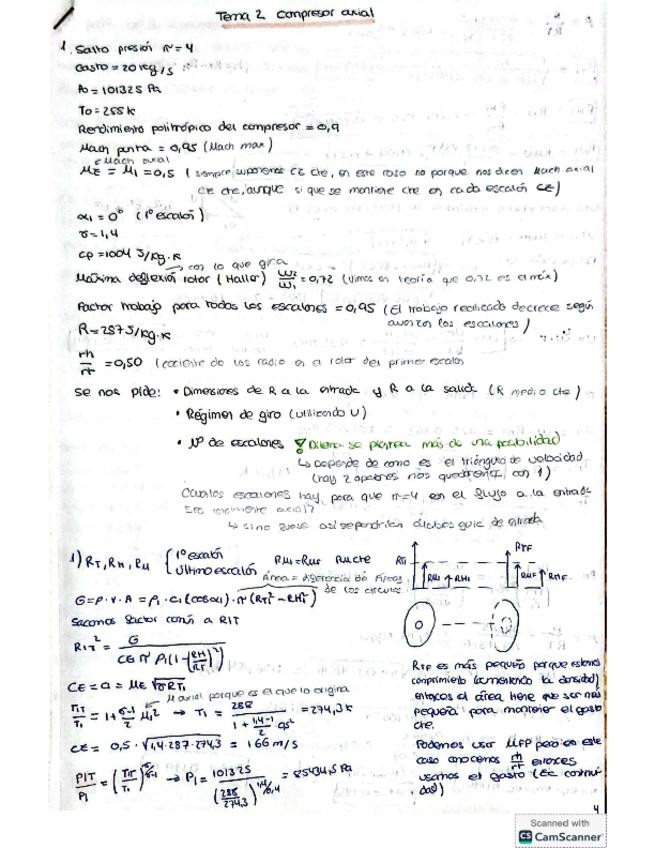 Tema 2 Compresor axial
1. Salto presión π=4
Gasto = 20 Kg/s
Po = 101325 Pa
To = 288 K
Rendimiento politrópico del compresor = 0,9
Mach punta = 0,95 (Mach max)
Mach axial
ME = M1 = 0,5 (siempre suponemos CE cte, en este caso no porque nos dicen Mach axial
CE cte, aunque si que se mantiene cte en cada escalón CE)
α1 = 0° (1º escalón)
γ = 1,4
Cp = 1004 J/kg·K
con lo que gira
Máxima deflexión rotor (Haller) W2/W1 = 0,72 (vimos en teoría que 0,72 es el máx)
Factor trabajo para todos los escalones = 0,95 (El trabajo realizado decrece según
avanzan los escalones)
R = 287 J/kg·K
rh/rt = 0,50 (cociente de los radio en el rotor del primer escalón
se nos pide: • Dimensiones de R a la entrada y R a la salida (R medio cte)
• Régimen de giro (utilizando U)
• Nº de escalones
↳ Depende de como es el triángulo de velocidad
(hay 2 opciones nos quedaremos con 1)
Cuantos escalones hay para que π=4, en el flujo a la entrada
1) RT, RH, RM { 1º escalón
Último escalón
RM1 = RMF RM cte
Área = diferencia de Áreas
de los círculos
G = ρ·V·A = ρ1·C1(cosα1)·π(RT1² - RH1²)
Sacamos factor común a R1T
R1T² = G / (CE π ρ1(1-(RH/RT)²))
CE = a = ME √γRT1
M axial porque es el que lo origina
T1T/T1 = 1 + γ-1/2 M1² → T1 = 288 / (1 + 1,4-1/2 0,5²) = 274,3 K
CE = 0,5·√1,4·287·274,3 = 166 m/s
P1T/P1 = (T1T/T1)^γ/γ-1 → P1 = 101325 / (288/274,3)^1,4/0,4 = 85434,5 Pa
RT1
RM1
RH1
RTF
RMF
RHF
RTF es más pequeño porque estamos
comprimiendo (aumentando la densidad)
entonces el área tiene que ser más
pequeña para mantener el gasto
cte.
Podemos usar MFP pero en este
caso conocemos rh/rt entonces
usamos el gasto (Ec continuidad)
4
Scanned with
CS CamScanner